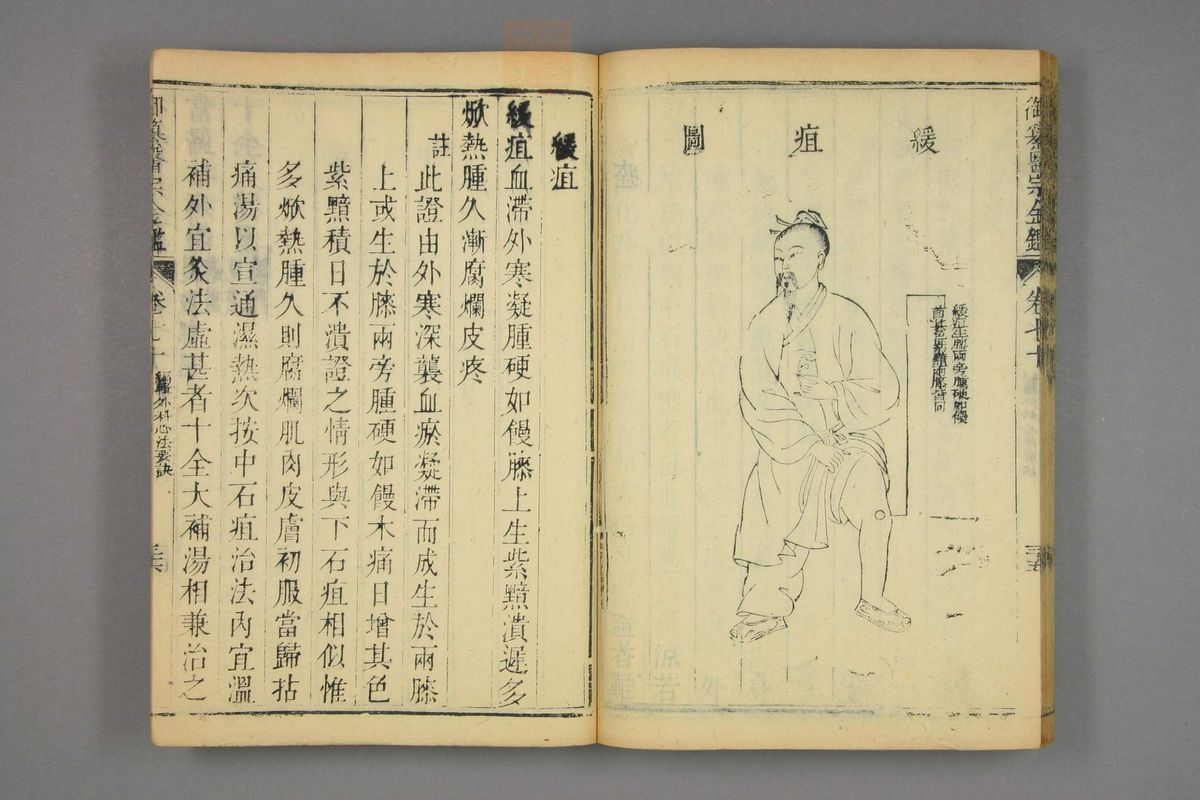 御纂醫宗金鑑 卷七十
緩疽圖
緩疽生膝兩旁腫硬如饅
三五
緩疽
緩疽血滯外寒凝腫硬如饅膝上生紫黯潰遲多
焮熱腫久漸腐爛皮疼
註此證由外寒深襲血瘀凝滯而成生於兩膝
上或生於膝兩旁腫硬如饅木痛日增其色
紫黯積日不潰證之情形與下石疽相似惟
多焮熱腫久則腐爛肌肉皮膚初服當歸拈
痛湯以宣通濕熱次按中石疽治法內宜溫
補外宜灸法虛甚者十全大補湯相兼治之
御纂醫宗金鑑 卷七十 外科心法要訣 三六